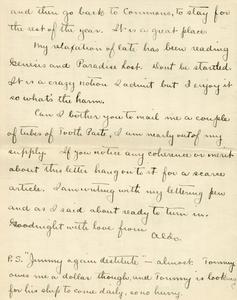 and then go back to Commons, to stay for
the rest of the year. It is a great place.
My relaxation of late has been reading
Genesis and Paradise Lost. Dont be startled.
It is a crazy notion I admit but I enjoy it
so what's the harm.
Can I bother you to mail me a couple
of tubes of Tooth Paste, I am nearly out of my
supply. If you notice any coherence or merit
about this letter hang on to it for a scarce
article. I am writing with my lettering pen
and as I said about ready to turn in.
Goodnight with love from
P.S. Jimmy again destitute - almost. Tommy
owes me a dollar though, and Tommy is looking
for his ship to come daily, so no hurry.